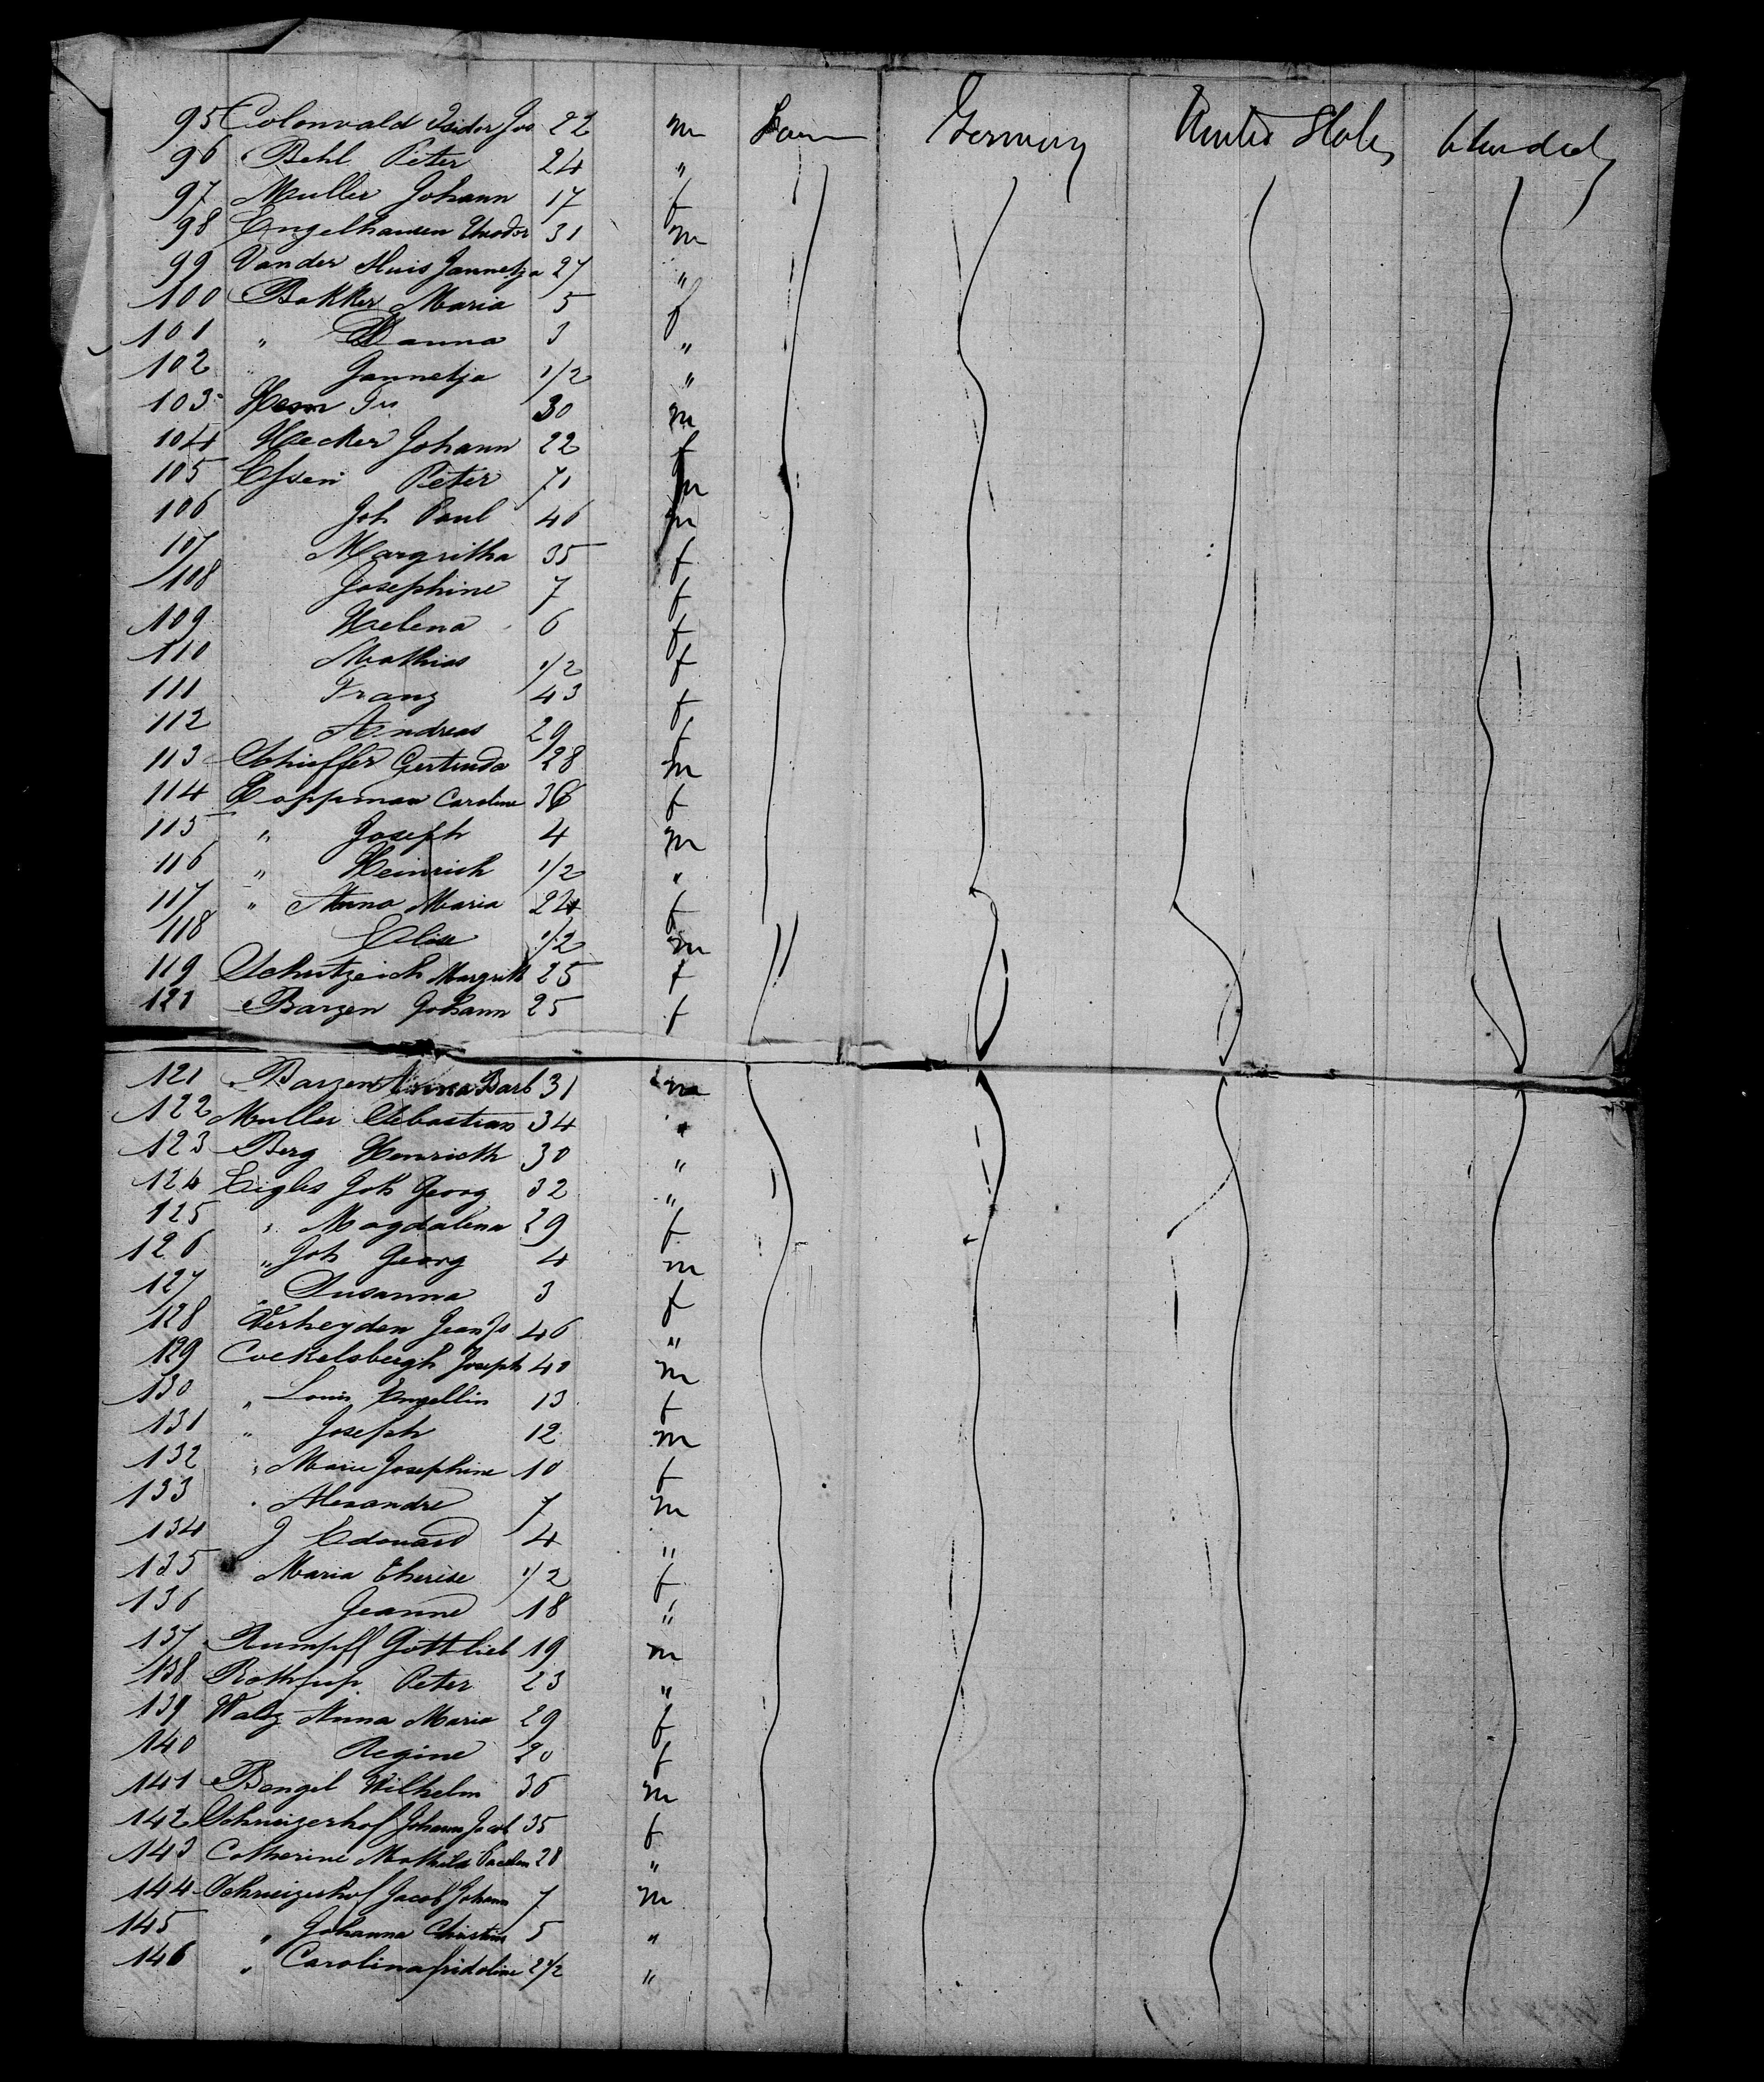 95 Colonvald Isidor Jos 22 m Germany United States
96 Behl Peter 24 "
97 Muller Johann 17 f
98 Engelhausen Theodor 31 m
99 Vander Sluis Jannetja 27 "
100 Bakker Maria 5 f
101 " Wanna 3 "
102 " Jannetja 1/2 "
103 30 m
104 Hecker Johann 22 f
105 Peter 71 m
106 Joh Paul 46 m
107 Margritha 35 f
108 Josephine 7 f
109 Helena 6 f
110 Mathias 1/2 f
111 Franz 43 f
112 Andreas 29 f
113 Schieffer Gertruda 28 m
114 Koppman Caroline 36 f
115 " Joseph 4 m
116 " Heinrich 1/2 "
117 " Anna Maria 24 f
118 Elise 1/2 m
119 Schutzeich Margrith 25 f
121 Barzen Johann 25 f
121 Barzen Anna Barb 31 m
122 Muller Sebastian 34 "
123 Berg Henrich 30 "
124 Joh Georg 32 "
125 " Magdalena 29 f
126 " Joh Georg 4 m
127 " Susanna 3 f
128 Verheyden Jean Js 46 "
129 Cockelsbergh Joseph 40 m
130 " Louis 13 f
131 " Joseph 12 m
132 " Marie Josephine 10 f
133 " Alexandre 7 m
134 J Edouard 4 "
135 Maria Therese 1/2 f
136 Jeanne 18 "
137 Rumpff Gottlieb 19 m
138 Peter 23 "
139 Walz Anna Maria 29 f
140 Regine 20 f
141 Bengel Wilhelm 36 m
142 Schweizerhof Johann Jacob 35 f
143 Catherine Mathilde 28 "
144 Schweizerhof Jacob Johann 7 m
145 " Johanna Christine 5 "
146 " Carolina fridoline 2 1/2 "